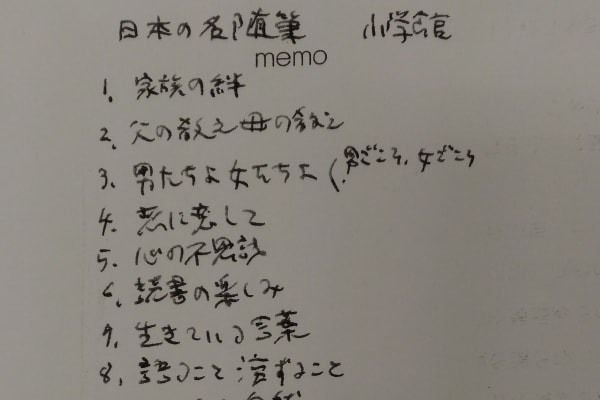 日本の名随筆 小学館
memo
1. 家族の絆
2. 父の教え母の教え
3. 男たちよ女たちよ (男ごころ、女ごころ
4. 恋に恋して
5. 心の不思議
6. 読書の楽しみ
7. 生きている言葉
8. 語ること演ずること